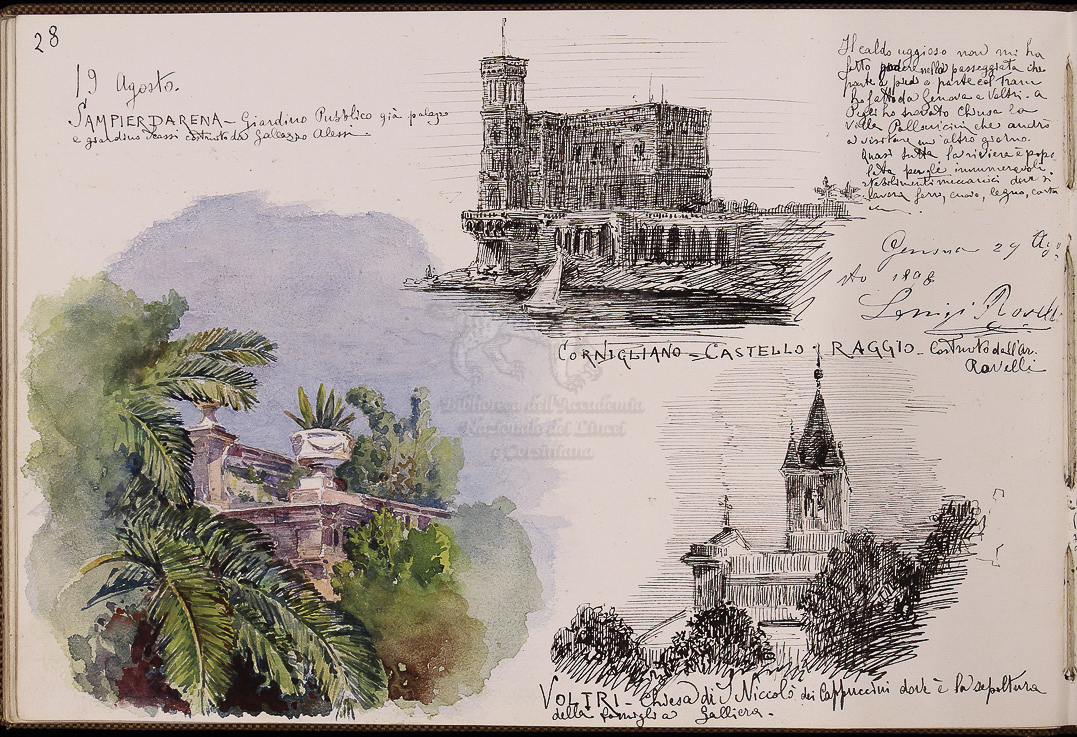 28
19 Agosto.
SAMPIERDARENA - Giardino Pubblico già palazzo
e giardino Scassi costruito da Galeazzo Alessi.
Il caldo uggioso non mi ha
fatto godere nella passeggiata che
parte a piedi e parte col tram
ho fatto da Genova a Voltri. a
Pegli ho trovato chiusa la
Villa Pallavicini che andrò
a visitare un altro giorno.
Quasi tutta la riviera è popo
lata per gli innumerevoli
stabilimenti meccanici dove si
lavora ferro, cuoio, legno, carta
Genova 29 Ago
sto 1898
Luigi Rovelli
CORNIGLIANO = CASTELLO RAGGIO - Costruito dall'Ar.
Rovelli
Biblioteca dell'Accademia
Nazionale dei Lincei
e Corsiniana
VOLTRI - Chiesa di S Niccolò dei Cappuccini dov'è la sepoltura
della famiglia Galliera.